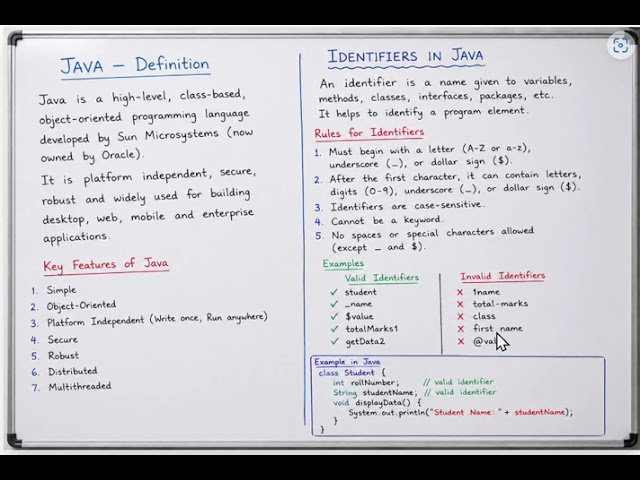 JAVA – Definition
Java is a high-level, class-based,
object-oriented programming language
developed by Sun Microsystems (now
owned by Oracle).
It is platform independent, secure,
robust and widely used for building
desktop, web, mobile and enterprise
applications.
Key Features of Java
1. Simple
2. Object-Oriented
3. Platform Independent (Write once, Run anywhere)
4. Secure
5. Robust
6. Distributed
7. Multithreaded
IDENTIFIERS IN JAVA
An identifier is a name given to variables,
methods, classes, interfaces, packages, etc.
It helps to identify a program element.
Rules for Identifiers
1. Must begin with a letter (A-Z or a-z),
underscore (_), or dollar sign ($).
2. After the first character, it can contain letters,
digits (0-9), underscore (_), or dollar sign ($).
3. Identifiers are case-sensitive.
4. Cannot be a keyword.
5. No spaces or special characters allowed
(except _ and $).
Examples
Valid Identifiers
✓ student
✓ _name
✓ $value
✓ totalMarks1
✓ getData2
Invalid Identifiers
✗ 1name
✗ total-marks
✗ class
✗ first name
✗
Example in Java
class Student {
int rollNumber; // valid identifier
String studentName; // valid identifier
void displayData() {
System.out.println("Student Name: " + studentName);
}
}